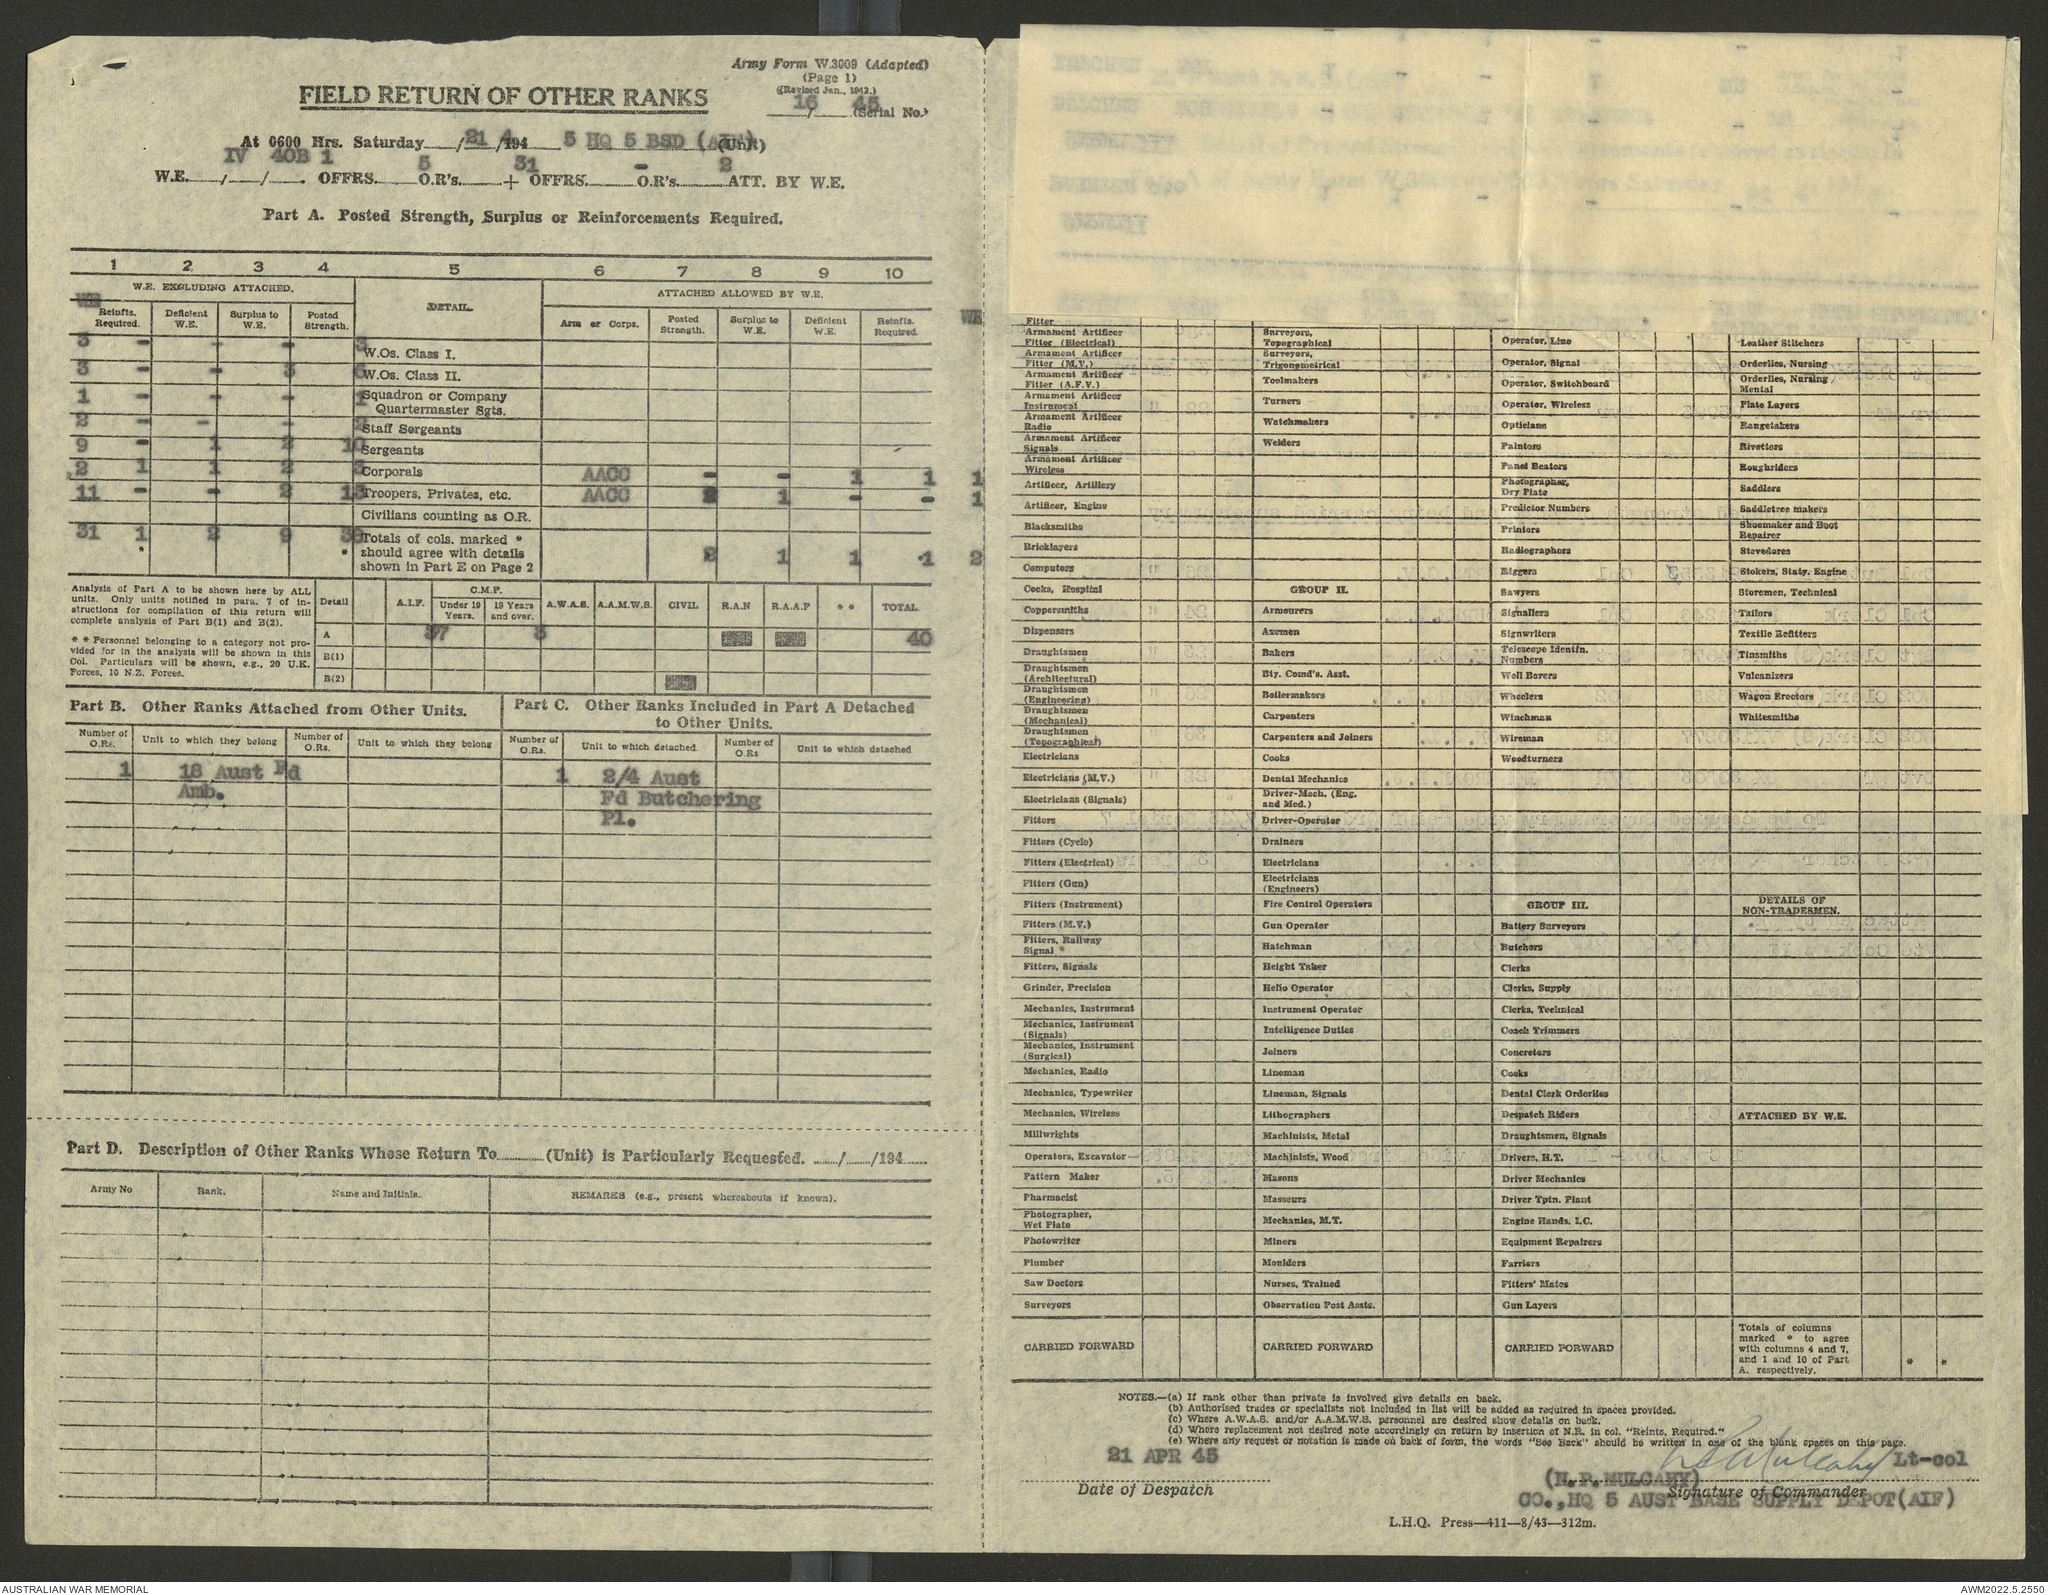 Army Form W.3009 (Adapted)
(Page 1)
(Revised Jan., 1943.)
FIELD RETURN OF OTHER RANKS
16 / 45 (Serial No.)
At 0600 Hrs. Saturday 21/4/1945 HQ 5 BSD (AIF) (Unit)
W.E. IV / 40B / 1. OFFRS. 5 O.R's. 31 + OFFRS. - O.R's. 2 ATT. BY W.E.
Part A. Posted Strength, Surplus or Reinforcements Required.
1 2 3 4 5 6 7 8 9 10
W.E. EXCLUDING ATTACHED. DETAIL. ATTACHED ALLOWED BY W.E.
WE Reinfts. Required. Deficient W.E. Surplus to W.E. Posted Strength. Arm or Corps. Posted Strength. Surplus to W.E. Deficient W.E. Reinfts. Required. WE
3 - - - 3 W.Os. Class I.
3 - - 3 6 W.Os. Class II.
1 - - - 1 Squadron or Company Quartermaster Sgts.
2 - - - 2 Staff Sergeants
9 - 1 2 10 Sergeants
2 1 1 2 3 Corporals AACC - - 1 1 1
11 - - 2 13 Troopers, Privates, etc. AACC 2 1 - - 1
Civilians counting as O.R.
31 1 2 9 38 Totals of cols. marked * should agree with details shown in Part E on Page 2 2 1 1 1 2
* *
Analysis of Part A to be shown here by ALL units. Only units notified in para. 7 of instructions for compilation of this return will complete analysis of Part B(1) and B(2).
* * Personnel belonging to a category not provided for in the analysis will be shown in this Col. Particulars will be shown, e.g., 20 U.K. Forces, 10 N.Z. Forces.
Detail A.I.F. C.M.F. Under 19 Years. 19 Years and over. A.W.A.S. A.A.M.W.S. CIVIL R.A.N R.A.A.F * * TOTAL
A 37 3 40
B(1)
B(2)
Part B. Other Ranks Attached from Other Units.
Part C. Other Ranks Included in Part A Detached to Other Units.
Number of O.Rs. Unit to which they belong Number of O.Rs. Unit to which they belong Number of O.Rs. Unit to which detached. Number of O.Rs Unit to which detached
1 18 Aust Fd 1 2/4 Aust
Amb. Fd Butchering
Pl.
Part D. Description of Other Ranks Whose Return To (Unit) is Particularly Requested. / /194
Army No Rank. Name and Initials. REMARKS (e.g., present whereabouts if known).
Fitter
Armament Artificer Fitter (Electrical) Surveyors, Topographical Operator, Line Leather Stitchers
Armament Artificer Fitter (M.V.) Surveyors, Trigonometrical Operator, Signal Orderlies, Nursing
Armament Artificer Fitter (A.F.V.) Toolmakers Operator, Switchboard Orderlies, Nursing Mental
Armament Artificer Instrument Turners Operator, Wireless Plate Layers
Armament Artificer Radio Watchmakers Opticians Rangetakers
Armament Artificer Signals Welders Painters Rivetters
Armament Artificer Wireless Panel Beaters Roughriders
Artificer, Artillery Photographer, Dry Plate Saddlers
Artificer, Engine Predictor Numbers Saddletree makers
Blacksmiths Printers Shoemaker and Boot Repairer
Bricklayers Radiographers Stevedores
Computers Riggers Stokers, Staty. Engine
Cooks, Hospital GROUP II. Sawyers Storemen, Technical
Coppersmiths Armourers Signallers Tailors
Dispensers Axemen Signwriters Textile Refitters
Draughtsmen Bakers Telescope Identfn. Numbers Tinsmiths
Draughtsmen (Architectural) Bty. Comd's. Asst. Well Borers Vulcanizers
Draughtsmen (Engineering) Boilermakers Wheelers Wagon Erectors
Draughtsmen (Mechanical) Carpenters Winchman Whitesmiths
Draughtsmen (Topographical) Carpenters and Joiners Wireman
Electricians Cooks Woodturners
Electricians (M.V.) Dental Mechanics
Electricians (Signals) Driver-Mech. (Eng. and Med.)
Fitters Driver-Operator
Fitters (Cycle) Drainers
Fitters (Electrical) Electricians
Fitters (Gun) Electricians (Engineers)
Fitters (Instrument) Fire Control Operators GROUP III. DETAILS OF NON-TRADESMEN.
Fitters (M.V.) Gun Operator Battery Surveyors
Fitters, Railway Signal Hatchman Butchers
Fitters, Signals Height Taker Clerks
Grinder, Precision Helio Operator Clerks, Supply
Mechanics, Instrument Instrument Operator Clerks, Technical
Mechanics, Instrument (Signals) Intelligence Duties Coach Trimmers
Mechanics, Instrument (Surgical) Joiners Concreters
Mechanics, Radio Lineman Cooks
Mechanics, Typewriter Lineman, Signals Dental Clerk Orderlies
Mechanics, Wireless Lithographers Despatch Riders ATTACHED BY W.E.
Millwrights Machinists, Metal Draughtsmen, Signals
Operators, Excavator Machinists, Wood Drivers, H.T.
Pattern Maker Masons Driver Mechanics
Pharmacist Masseurs Driver Tptn. Plant
Photographer, Wet Plate Mechanics, M.T. Engine Hands, I.C.
Photowriter Miners Equipment Repairers
Plumber Moulders Farriers
Saw Doctors Nurses, Trained Fitters' Mates
Surveyors Observation Post Assts. Gun Layers
CARRIED FORWARD CARRIED FORWARD CARRIED FORWARD Totals of columns marked * to agree with columns 4 and 7, and 1 and 10 of Part A. respectively. * *
NOTES.—(a) If rank other than private is involved give details on back.
(b) Authorised trades or specialists not included in list will be added as required in spaces provided.
(c) Where A.W.A.S. and/or A.A.M.W.S. personnel are desired show details on back.
(d) Where replacement not desired note accordingly on return by insertion of N.R. in col. "Reints. Required."
(e) Where any request or notation is made on back of form, the words "See Back" should be written in one of the blank spaces on this page.
21 APR 45 Lt-col
Date of Despatch
(N.P.MULCAHY) Signature of Commander
CO.,HQ 5 AUST BASE SUPPLY DEPOT(AIF)
L.H.Q. Press—411—8/43—312m.
AUSTRALIAN WAR MEMORIAL
AWM2022.5.2550